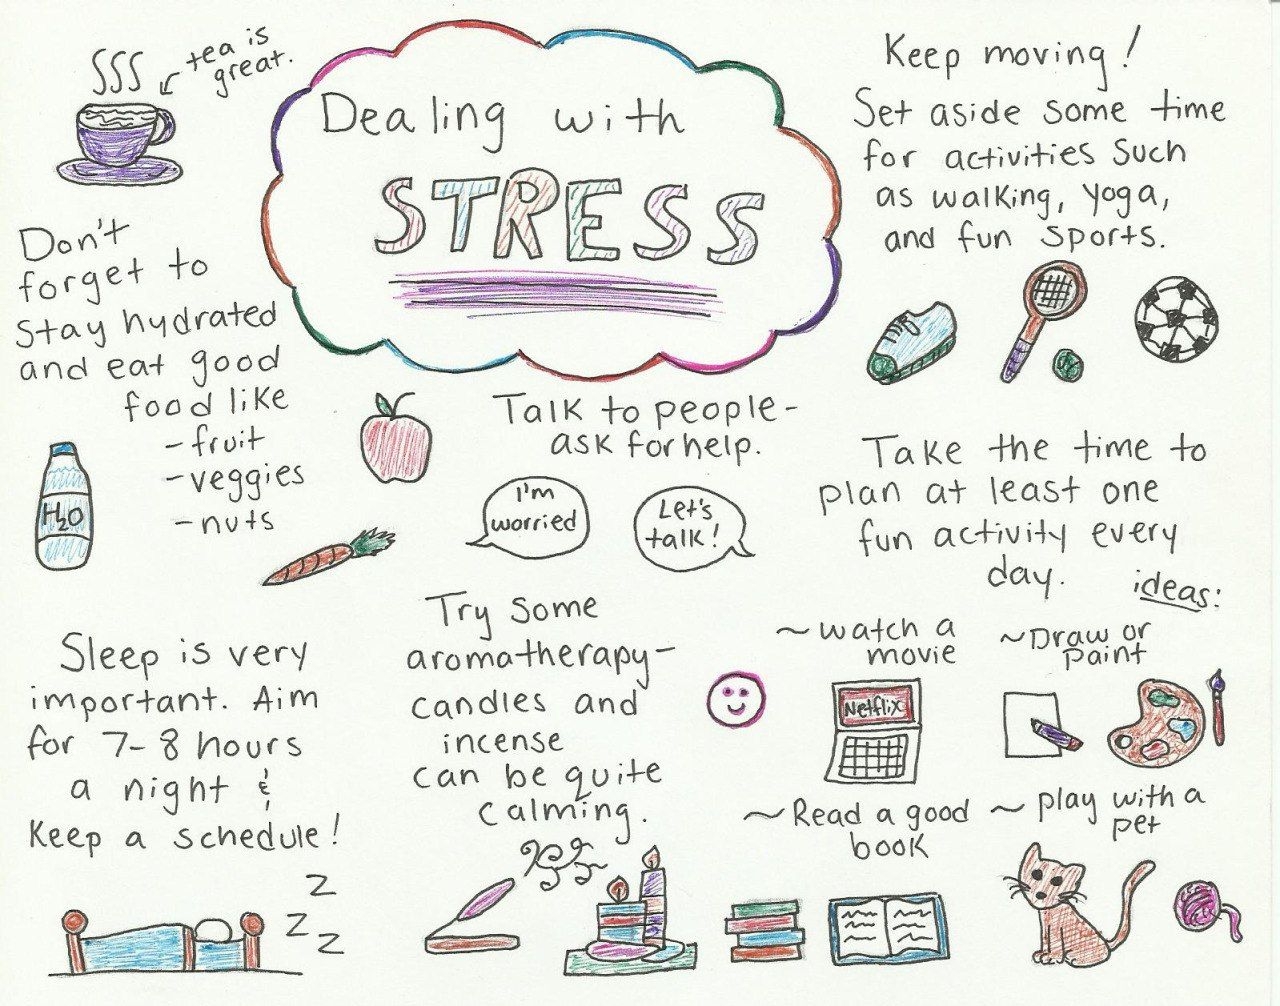 tea is
great.
Dealing with
STRESS
Keep moving!
Set aside some time
for activities such
as walking, yoga,
and fun sports.
Don't
forget to
stay hydrated
and eat good
food like
- fruit
- veggies
- nuts
H2O
Talk to people-
ask for help.
I'm
worried
Let's
talk!
Take the time to
plan at least one
fun activity every
day.
ideas:
~ watch a
movie
Netflix
~ Draw or
paint
~ Read a good
book
~ play with a
pet
Sleep is very
important. Aim
for 7-8 hours
a night &
keep a schedule!
z
z
z
Try some
aromatherapy-
candles and
incense
can be quite
calming.